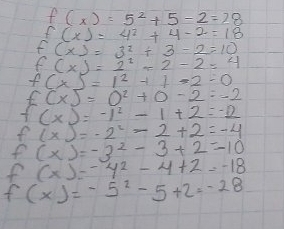 f(x) = 5² + 5 - 2 = 28
f(x) = 4² + 4 - 2 = 18
f(x) = 3² + 3 - 2 = 10
f(x) = 2² - 2 - 2 = 4
f(x) = 1² + 1 - 2 = 0
f(x) = 0² + 0 - 2 = -2
f(x) = -1² - 1 + 2 = -2
f(x) = -2² - 2 + 2 = -4
f(x) = -3² - 3 + 2 = -10
f(x) = -4² - 4 + 2 = -18
f(x) = -5² - 5 + 2 = -28